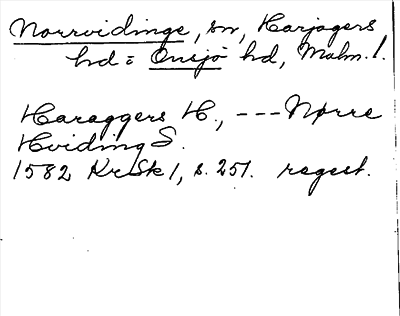 Norrvidinge, sn, Harjagers
hd = Onsjö hd, Malm. l.
Haraggers H., --- Nørre
Hviding S.
1582 KrSk 1, s. 251. regest.